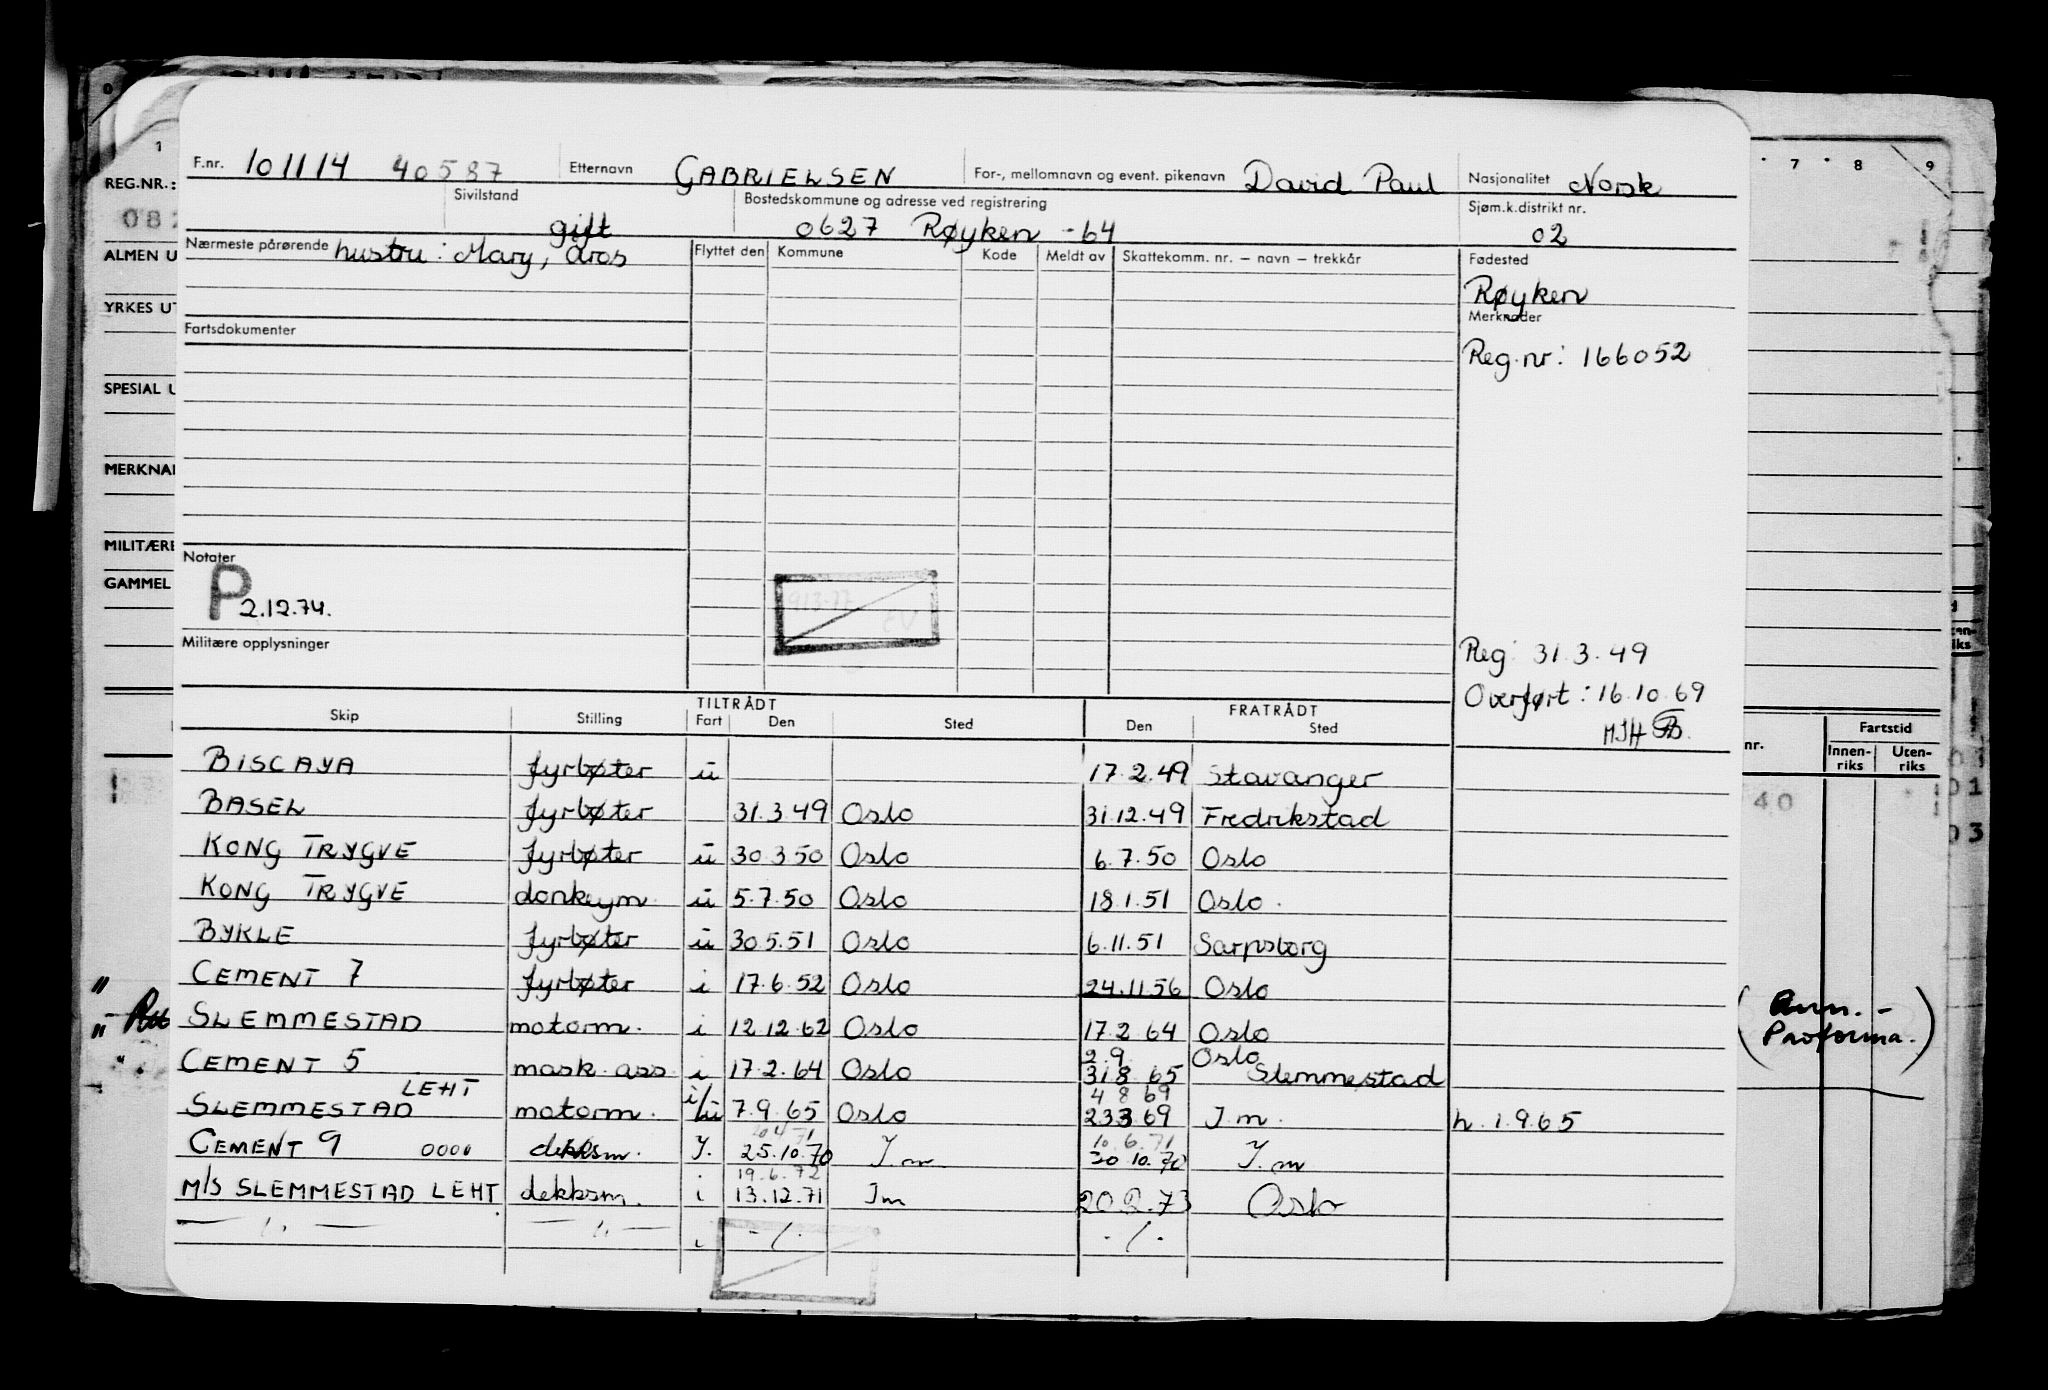 F.nr. 101114 40587 Etternavn GABRIELSEN For-, mellomnavn og event. pikenavn David Paul Nasjonalitet Norsk
Sivilstand gift Bostedskommune og adresse ved registrering 0627 Røyken -64 Sjøm.k.distrikt nr. 02
Nærmeste pårørende hustru: Mary, Åros Flyttet den Kommune Kode Meldt av Skattekomm. nr. – navn – trekkår Fødested
Røyken
Fartsdokumenter Merknader
Reg.nr: 166052
Notater
P 2.12.74.
Militære opplysninger
Reg: 31.3.49
Overført: 16.10.69
TILTRÅDT FRATRÅDT
Skip Stilling Fart Den Sted Den Sted
BISCAYA fyrbøter u 17.2.49 Stavanger
BASEL fyrbøter 31.3.49 Oslo 31.12.49 Fredrikstad
KONG TRYGVE fyrbøter u 30.3.50 Oslo 6.7.50 Oslo
KONG TRYGVE donkeym. u 5.7.50 Oslo 18.1.51 Oslo.
BYKLE fyrbøter u 30.5.51 Oslo 6.11.51 Sarpsborg
CEMENT 7 fyrbøter i 17.6.52 Oslo 24.11.56 Oslo
SLEMMESTAD motorm. i 12.12.62 Oslo 17.2.64 Oslo
2.9. Oslo
CEMENT 5 mask.ass. i 17.2.64 Oslo 31.8.65 Slemmestad
LEHT 4 8 69
SLEMMESTAD motorm. i/u 7.9.65 Oslo 23.3.69 I.m. h.1.9.65
10.6.71
CEMENT 9 0000 dekksm. I. 25.10.70 I.m 30.10.70 I.m
19.6.72
M/S SLEMMESTAD LEHT dekksm. i 13.12.71 Im 20.2.73 Oslo
— " — — " — i - / · - / ·
REG.NR.:
ALMEN U
YRKES UT
SPESIAL U
MERKNA
MILITÆRE
GAMMEL
1
7 8 9
nr. Fartstid
Innen- Uten-
riks riks
40
01
03
(Ann. -
Proforma.)